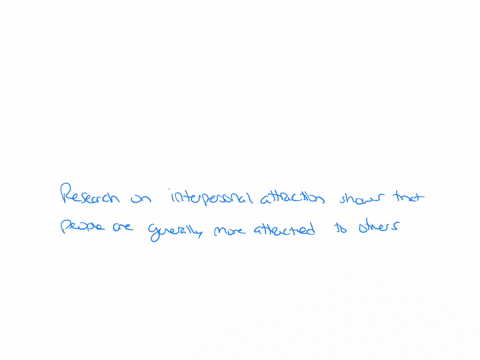 Research on interpersonal attraction shows that
people are generally more attracted to others